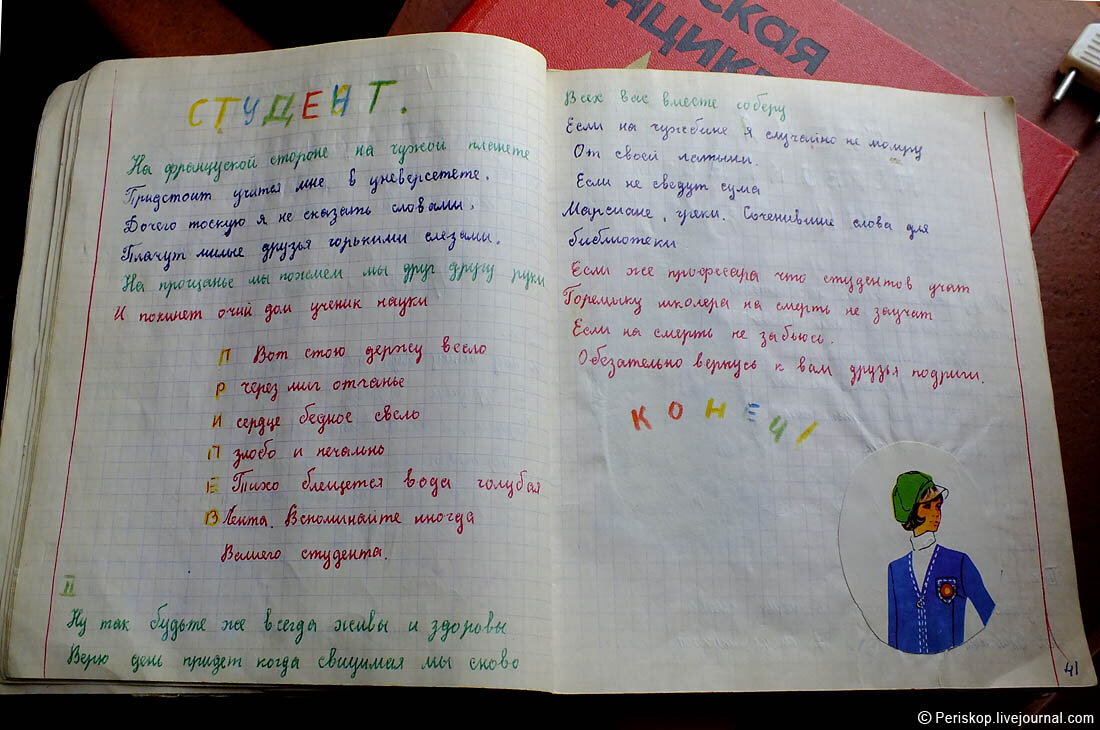 СТУДЕНТ.
На француской стороне на чужой планете
Придстоит учится мне в уневерсетете.
Дочего тоскую я не сказать словами.
Плачут милые друзья горькими слезами.
На прощанье мы пожмем мы друг другу руки
И покинет очий дом ученик науки
П Вот стою держу весло
Р через миг отчанье
И сердце бедное свело
П злобо и печально
Е Тихо блещется вода голубая
В Лента. Вспоминайте иногда
Вашего студента.
II
Ну так будьте же всегда живы и здоровы
Верю день придет когда свидимая мы сново
Всех вас вместе соберу
Если на чужбине я случайно не помру
От своей латыни.
Если не сведут сума
Марсиане, греки. Соченившие слова для
библиотеки
Если же професара что студентов учат
Горемыку школера на смерть не заучат
Если на смерть не забьюсь.
Обезательно вернусь к вам друзья подриги.
КОНЕЦ!
41
ская
нцик
© Periskop.livejournal.com